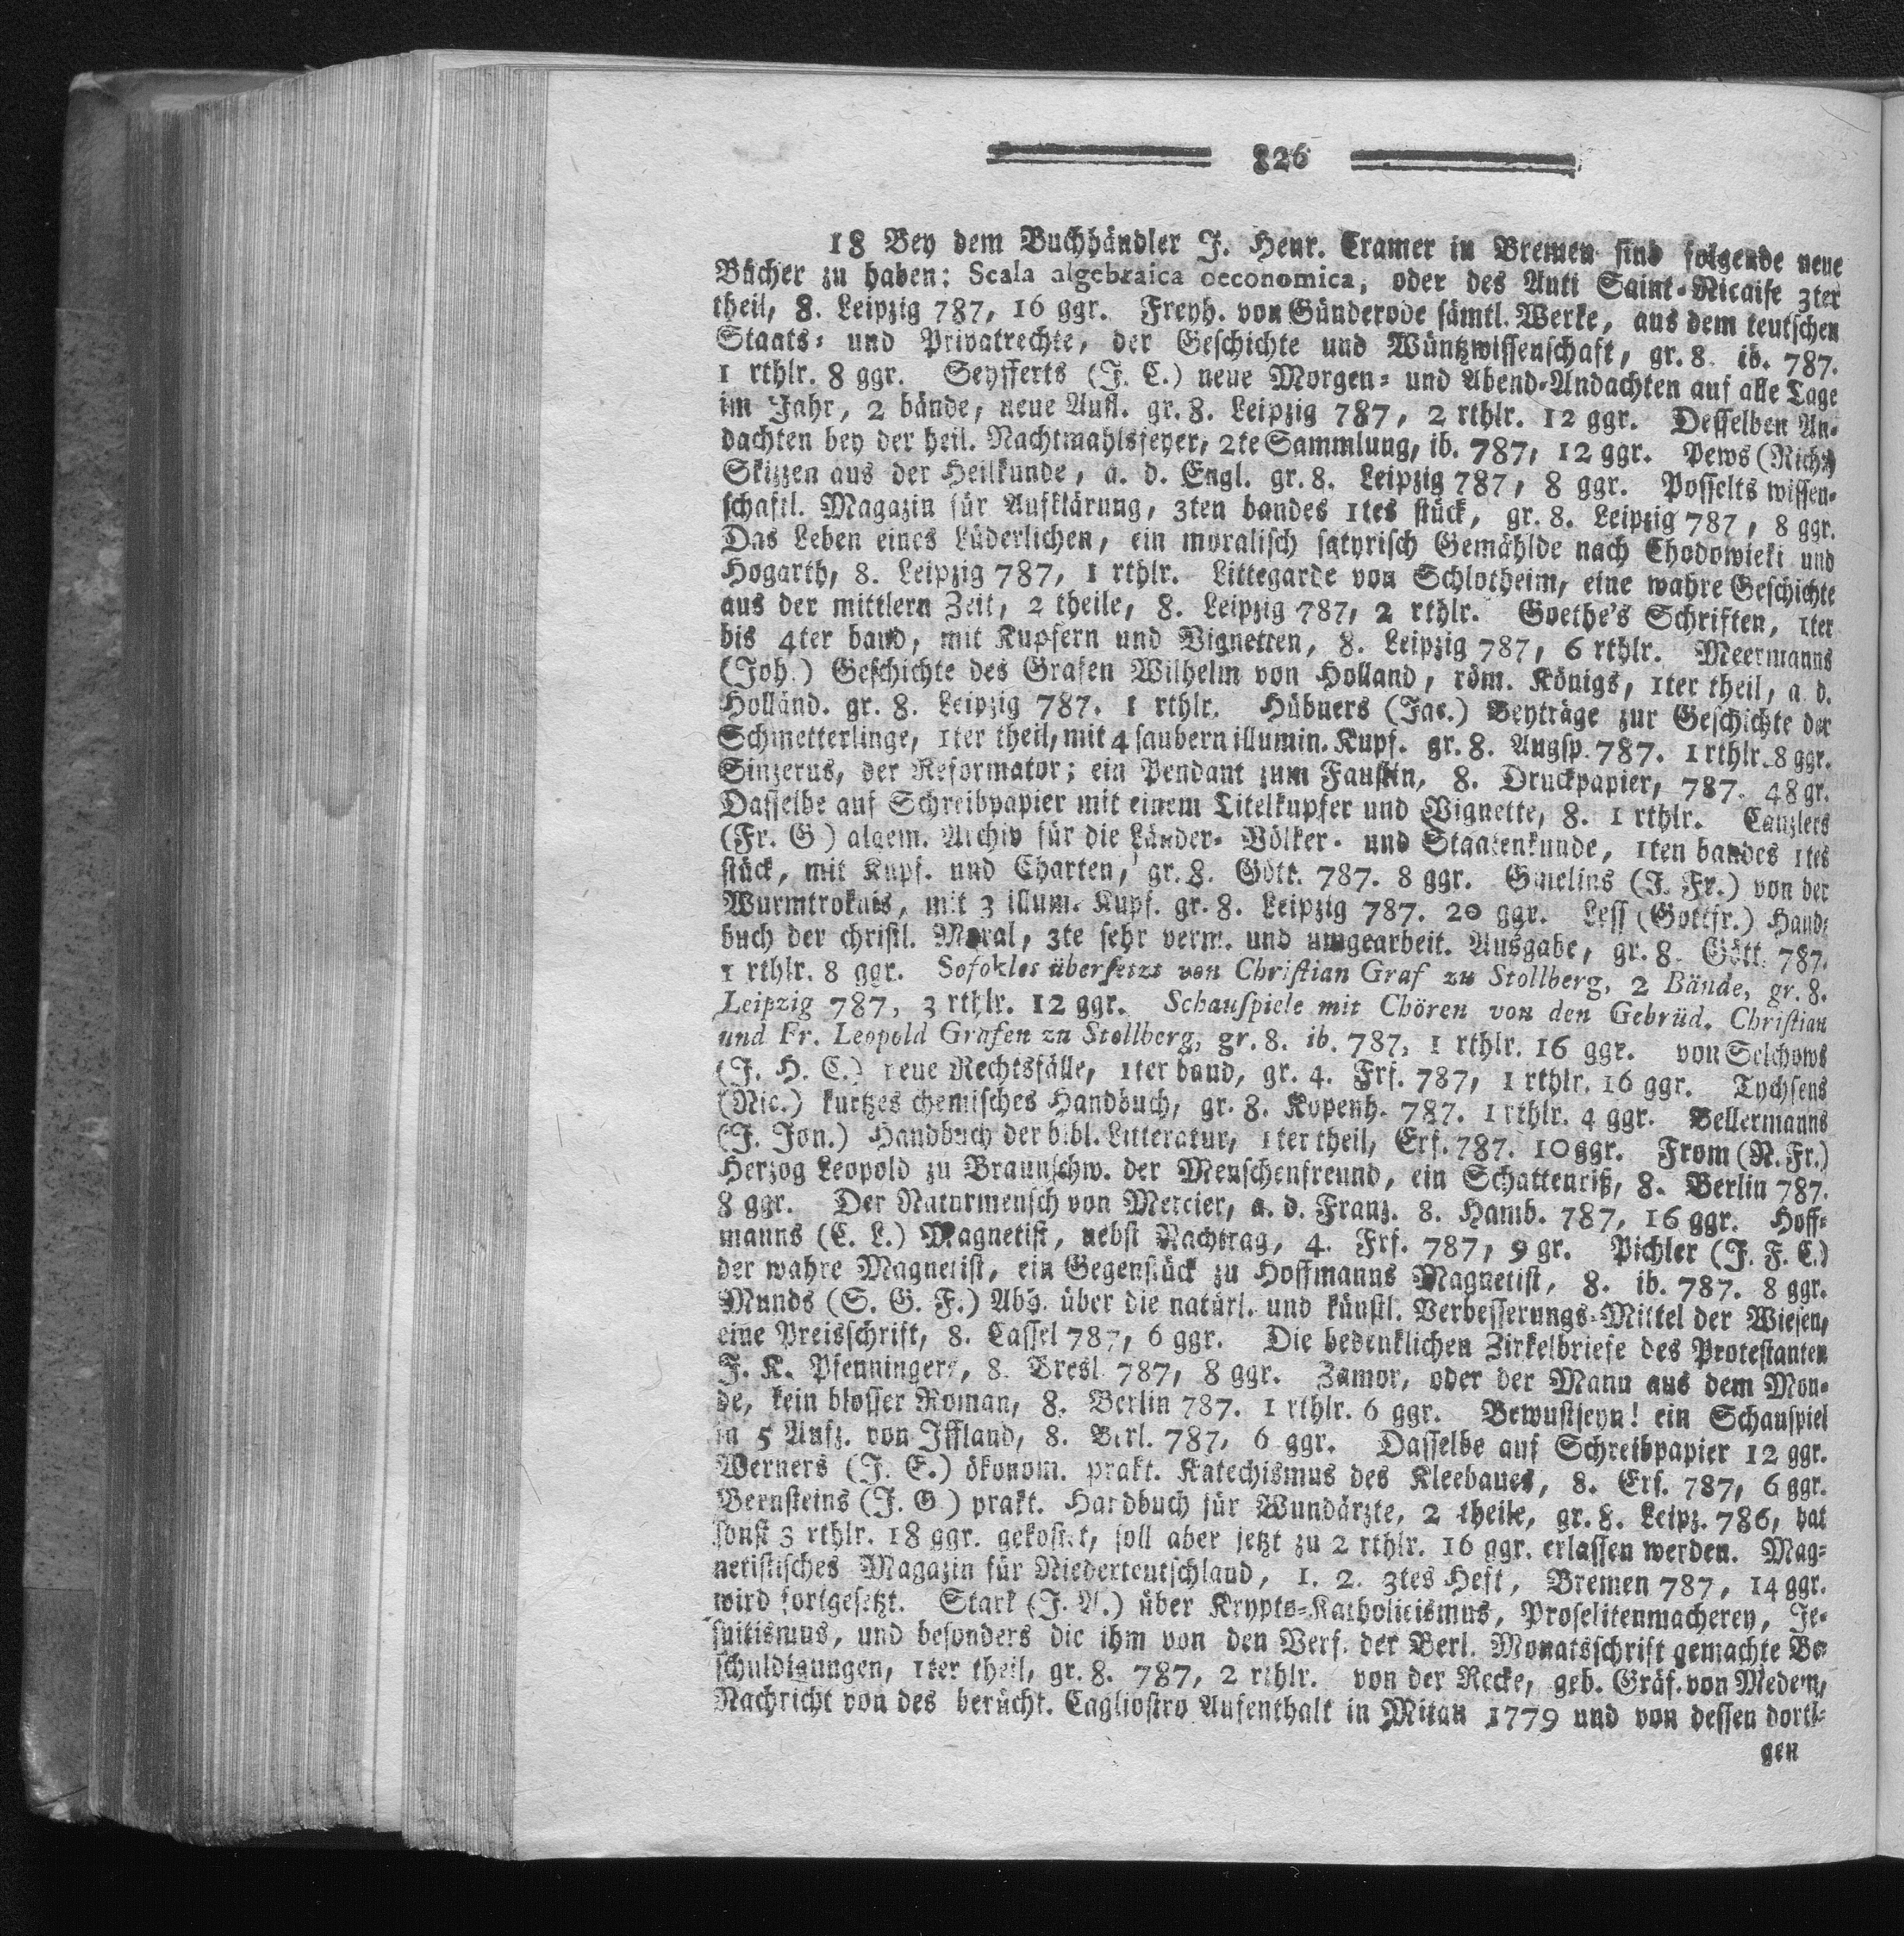 826
18 Bey dem Buchhändler J. Henr. Cramer in Bremen sind folgende neue
Bücher zu haben: Scala algebraica oeconomica, oder des Anti Saint-Nicaise 3ter
theil, 8. Leipzig 787, 16 ggr. Freyh. von Günderode sämtl. Werke, aus dem teutschen
Staats- und Privatrechte, der Geschichte und Müntzwissenschaft, gr. 8. ib. 787.
1 rthlr. 8 ggr. Seyfferts (J. C.) neue Morgen- und Abend-Andachten auf alle Tage
im Jahr, 2 bände, neue Aufl. gr. 8. Leipzig 787, 2 rthlr. 12 ggr. Desselben An-
dachten bey der heil. Nachtmahlsfeyer, 2te Sammlung, ib. 787, 12 ggr. Pews (Rich.)
Skizzen aus der Heilkunde, a. d. Engl. gr. 8. Leipzig 787, 8 ggr. Posselts wissen-
schaftl. Magazin für Aufklärung, 3ten bandes 1tes stück, gr. 8. Leipzig 787, 8 ggr.
Das Leben eines Lüderlichen, ein moralisch satyrisch Gemählde nach Chodowieki und
Hogarth, 8. Leipzig 787, 1 rthlr. Littegarde von Schlotheim, eine wahre Geschichte
aus der mittlern Zeit, 2 theile, 8. Leipzig 787, 2 rthlr. Goethe's Schriften, 1ter
bis 4ter band, mit Kupfern und Vignetten, 8. Leipzig 787, 6 rthlr. Meermanns
(Joh.) Geschichte des Grafen Wilhelm von Holland, röm. Königs, 1ter theil, a. d.
Holländ. gr. 8. Leipzig 787. 1 rthlr. Hübners (Jac.) Beyträge zur Geschichte der
Schmetterlinge, 1ter theil, mit 4 saubern illumin. Kupf. gr. 8. Augsp. 787. 1 rthlr. 8 ggr.
Sinzerus, der Reformator; ein Pendant zum Faustin, 8. Druckpapier, 787. 48 gr.
Dasselbe auf Schreibpapier mit einem Titelkupfer und Vignette, 8. 1 rthlr. Canzlers
(Fr. G) algem. Archiv für die Länder- Völker- und Staatenkunde, 1ten bandes 1tes
stück, mit Kupf. und Charten, gr. 8. Gött. 787. 8 ggr. Gmelins (J. Fr.) von der
Wurmtroknis, mit 3 illum. Kupf. gr. 8. Leipzig 787. 20 ggr. Less (Gottfr.) Hand-
buch der christl. Moral, 3te sehr verm. und umgearbeit. Ausgabe, gr. 8. Gött. 787.
1 rthlr. 8 ggr. Sofokles übersetzt von Christian Graf zu Stollberg, 2 Bände, gr. 8.
Leipzig 787, 3 rthlr. 12 ggr. Schauspiele mit Chören von den Gebrüd. Christian
und Fr. Leopold Grafen zu Stollberg, gr. 8. ib. 787, 1 rthlr. 16 ggr. von Selchows
(J. H. C.) neue Rechtsfälle, 1ter band, gr. 4. Frf. 787, 1 rthlr. 16 ggr. Tychsens
(Nic.) kurtzes chemisches Handbuch, gr. 8. Kopenh. 787. 1 rthlr. 4 ggr. Bellermanns
(J. Jon.) Handbuch der bibl. Litteratur, 1ter theil, Erf. 787. 10 ggr. From (N. Fr.)
Herzog Leopold zu Braunschw. der Menschenfreund, ein Schattenriß, 8. Berlin 787.
8 ggr. Der Naturmensch von Mercier, a. d. Franz. 8. Hamb. 787, 16 ggr. Hoff-
manns (C. L.) Magnetist, nebst Nachtrag, 4. Frf. 787, 9 gr. Pichler (J. F. C.)
der wahre Magnetist, ein Gegenstück zu Hoffmanns Magnetist, 8. ib. 787. 8 ggr.
Munds (S. G. F.) Abh. über die natürl. und künstl. Verbesserungs-Mittel der Wiesen,
eine Preisschrift, 8. Cassel 787, 6 ggr. Die bedenklichen Zirkelbriefe des Protestanten
J. K. Pfenningers, 8. Bresl. 787, 8 ggr. Zamor, oder der Mann aus dem Mon-
de, kein blosser Roman, 8. Berlin 787. 1 rthlr. 6 ggr. Bewustseyn! ein Schauspiel
in 5 Aufz. von Iffland, 8. Berl. 787, 6 ggr. Dasselbe auf Schreibpapier 12 ggr.
Werners (J. E.) ökonom. prakt. Katechismus des Kleebaues, 8. Erf. 787, 6 ggr.
Bernsteins (J. G) prakt. Handbuch für Wundärzte, 2 theile, gr. 8. Leipz. 786, hat
sonst 3 rthlr. 18 ggr. gekostet, soll aber jetzt zu 2 rthlr. 16 ggr. erlassen werden. Mag-
netistisches Magazin für Niederteutschland, 1. 2. 3tes Heft, Bremen 787, 14 ggr.
wird fortgesetzt. Stark (J. A.) über Krypto-Katholicismus, Proselitenmacherey, Je-
suitismus, und besonders die ihm von den Verf. der Berl. Monatsschrift gemachte Be-
schuldigungen, 1ter theil, gr. 8. 787, 2 rthlr. von der Recke, geb. Gräf. von Medem,
Nachricht von des berücht. Cagliostro Aufenthalt in Mitau 1779 und von dessen dorti-
gen